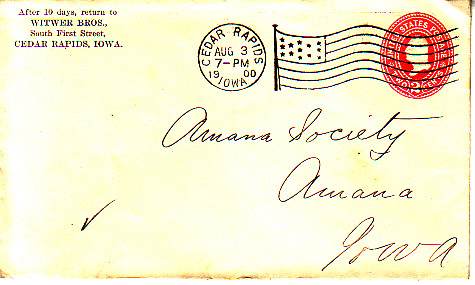 After 10 days, return to
WITWER BROS.,
South First Street,
CEDAR RAPIDS, IOWA.
CEDAR RAPIDS
AUG 3
7-PM
1900
IOWA
UNITED STATES
Amana Society
Amana
Iowa